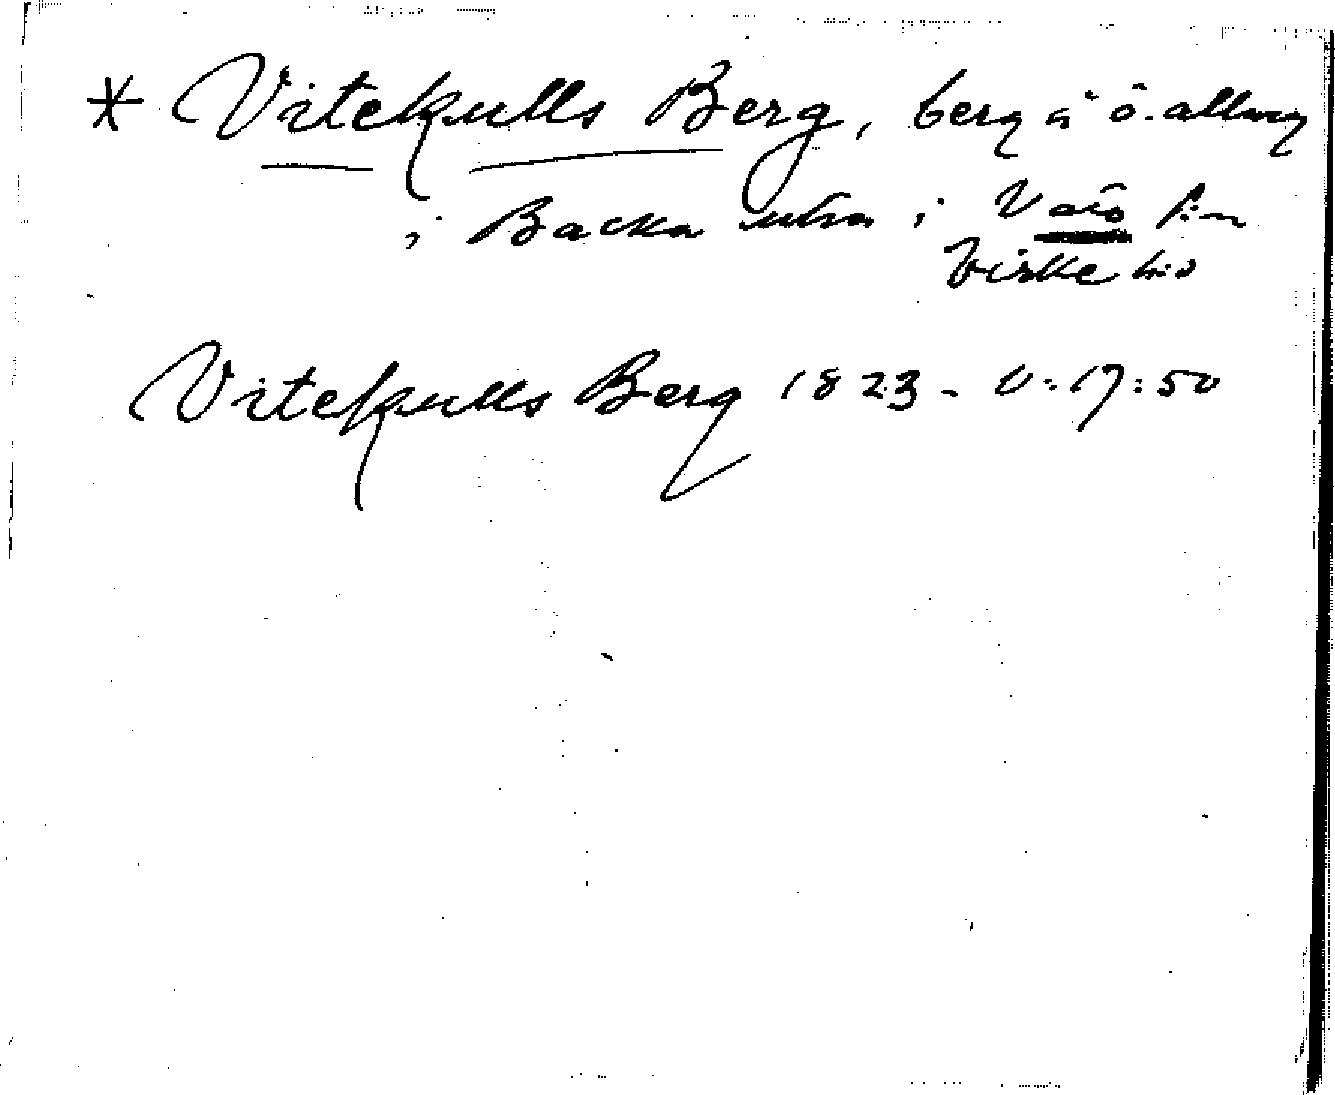 * Vitekulls Berg, berg å ö. allmg
i Backa utm i Värö s:n
Viske hd
Vitekulls Berg 1823 - V:17:50